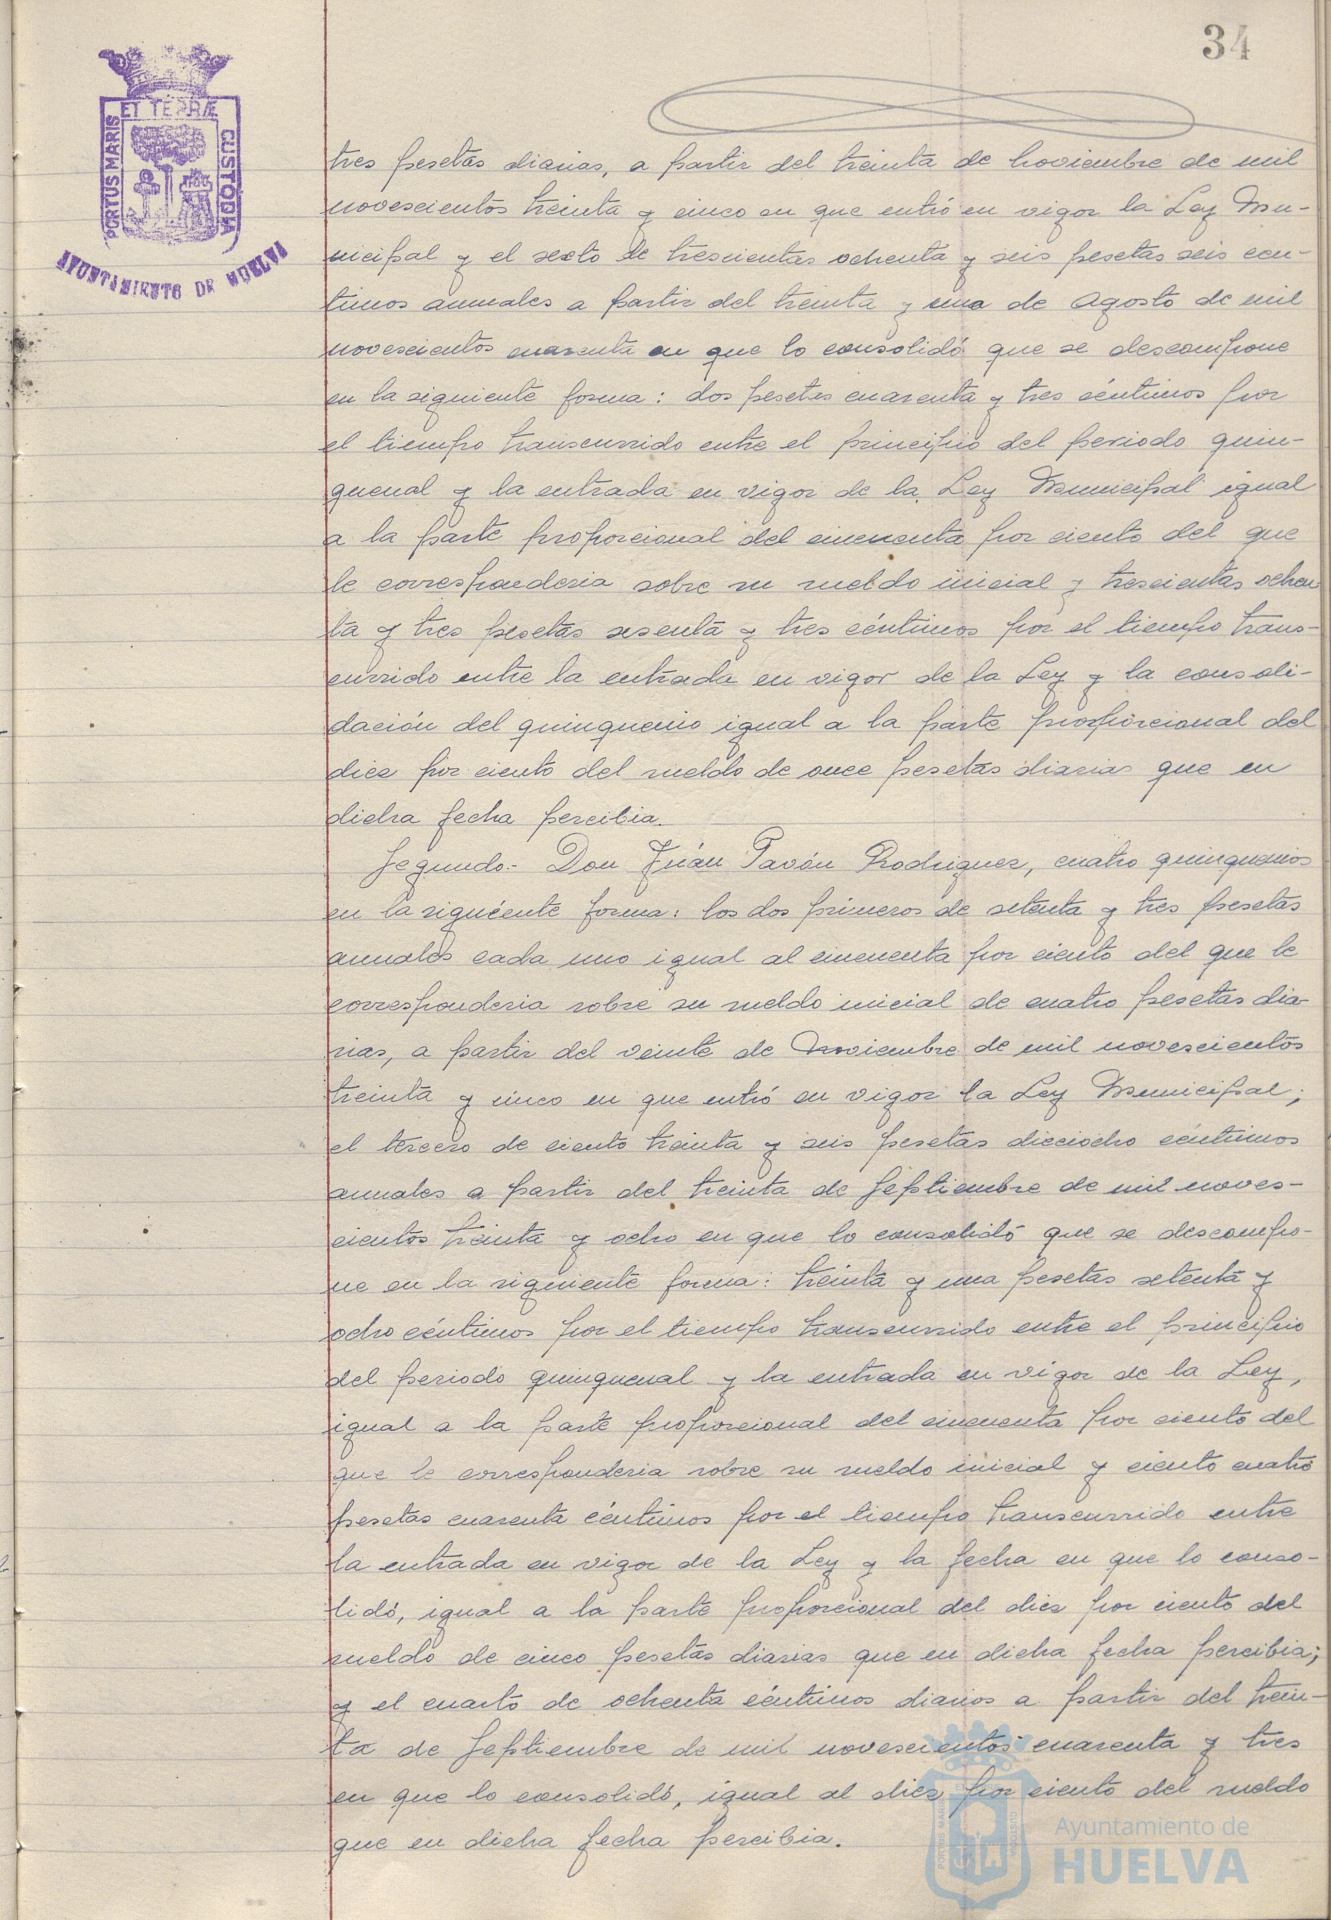 34
PORTUS MARIS ET TERRÆ CUSTODIA
AYUNTAMIENTO DE HUELVA
tres pesetas diarias, a partir del treinta de Noviembre de mil
novescientos treinta y cinco en que entró en vigor la Ley Mu-
nicipal y el sexto de trescientas ochenta y seis pesetas seis cen-
timos anuales a partir del treinta y uno de Agosto de mil
novescientos cuarenta en que lo consolidó que se descompone
en la siguiente forma: dos pesetas cuarenta y tres céntimos por
el tiempo transcurrido entre el principio del periodo quin-
quenal y la entrada en vigor de la Ley Municipal igual
a la parte proporcional del cincuenta por ciento del que
le corresponderia sobre su sueldo inicial y trescientas ochen
ta y tres pesetas sesenta y tres céntimos por el tiempo trans-
currido entre la entrada en vigor de la Ley y la consoli-
dación del quinquenio igual a la parte proporcional del
diez por ciento del sueldo de once pesetas diarias que en
dicha fecha percibia.
Segundo.- Don Juán Pavón Rodriguez, cuatro quinquenios
en la siguiente forma: los dos primeros de setenta y tres pesetas
anuales cada uno igual al cincuenta por ciento del que le
corresponderia sobre su sueldo inicial de cuatro pesetas dia-
rias, a partir del veinte de Noviembre de mil novescientos
treinta y cinco en que entró en vigor la Ley Municipal;
el tercero de ciento treinta y seis pesetas dieciocho céntimos
anuales a partir del treinta de Septiembre de mil noves-
cientos treinta y ocho en que lo consolidó que se descompo-
ne en la siguiente forma: treinta y una pesetas setenta y
ocho céntimos por el tiempo transcurrido entre el principio
del periodo quinquenal y la entrada en vigor de la Ley,
igual a la parte proporcional del cincuenta por ciento del
que le corresponderia sobre su sueldo inicial y ciento cuatro
pesetas cuarenta céntimos por el tiempo transcurrido entre
la entrada en vigor de la Ley y la fecha en que lo conso-
lidó, igual a la parte proporcional del diez por ciento del
sueldo de cinco pesetas diarias que en dicha fecha percibia;
y el cuarto de ochenta céntimos diarios a partir del trein-
ta de Septiembre de mil novescientos cuarenta y tres
en que lo consolidó, igual al diez por ciento del sueldo
que en dicha fecha percibia.
Ayuntamiento de
HUELVA